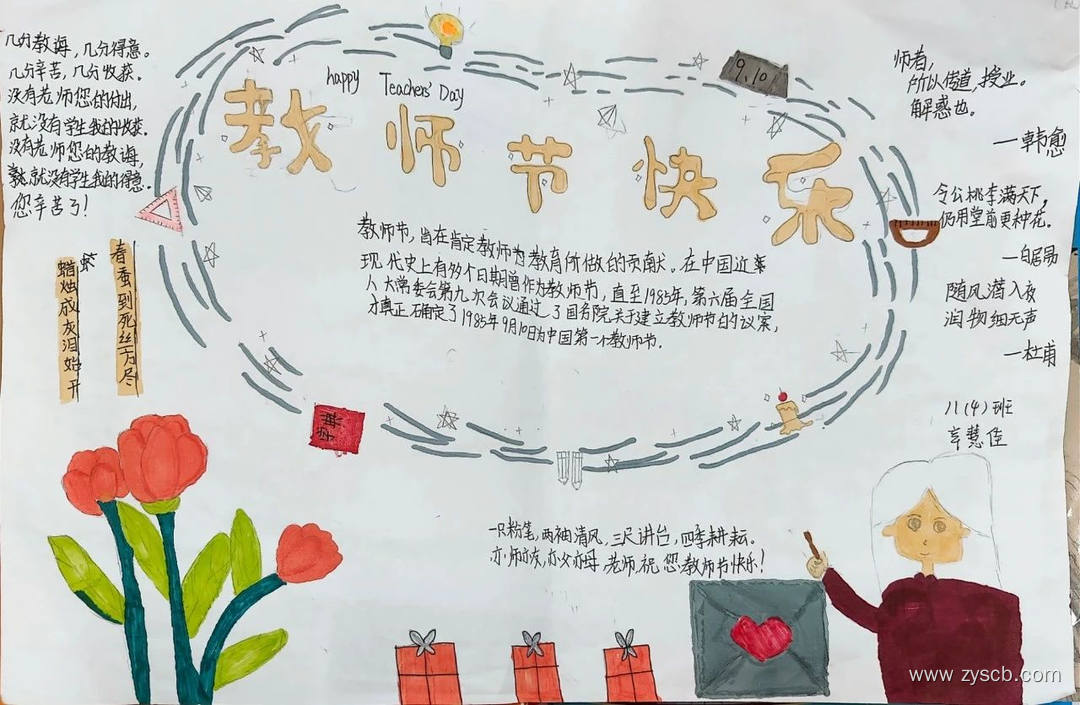 几分教诲，几分得意。
几分辛苦，几分收获。
没有老师您的付出，
就没有学生我的收获。
没有老师您的教诲，
就没有学生我的得意。
您辛苦了！
春蚕到死丝方尽
蜡炬成灰泪始干
happy Teachers' Day
9.10
教师节快乐
教师节，旨在肯定教师为教育所做的贡献。在中国近
现代史上有多个日期曾作为教师节，直至1985年，第六届全国
人大常委会第九次会议通过了国务院关于建立教师节的议案，
才真正确定了1985年9月10日为中国第一个教师节。
师者，
所以传道，授业。
解惑也。
—韩愈
令公桃李满天下，
何用堂前更种花。
—白居易
随风潜入夜
润物细无声
—杜甫
八(4)班
一只粉笔，两袖清风，三尺讲台，四季耕耘。
亦师亦友，亦父亦母，老师，祝您教师节快乐！
www.zyscb.com